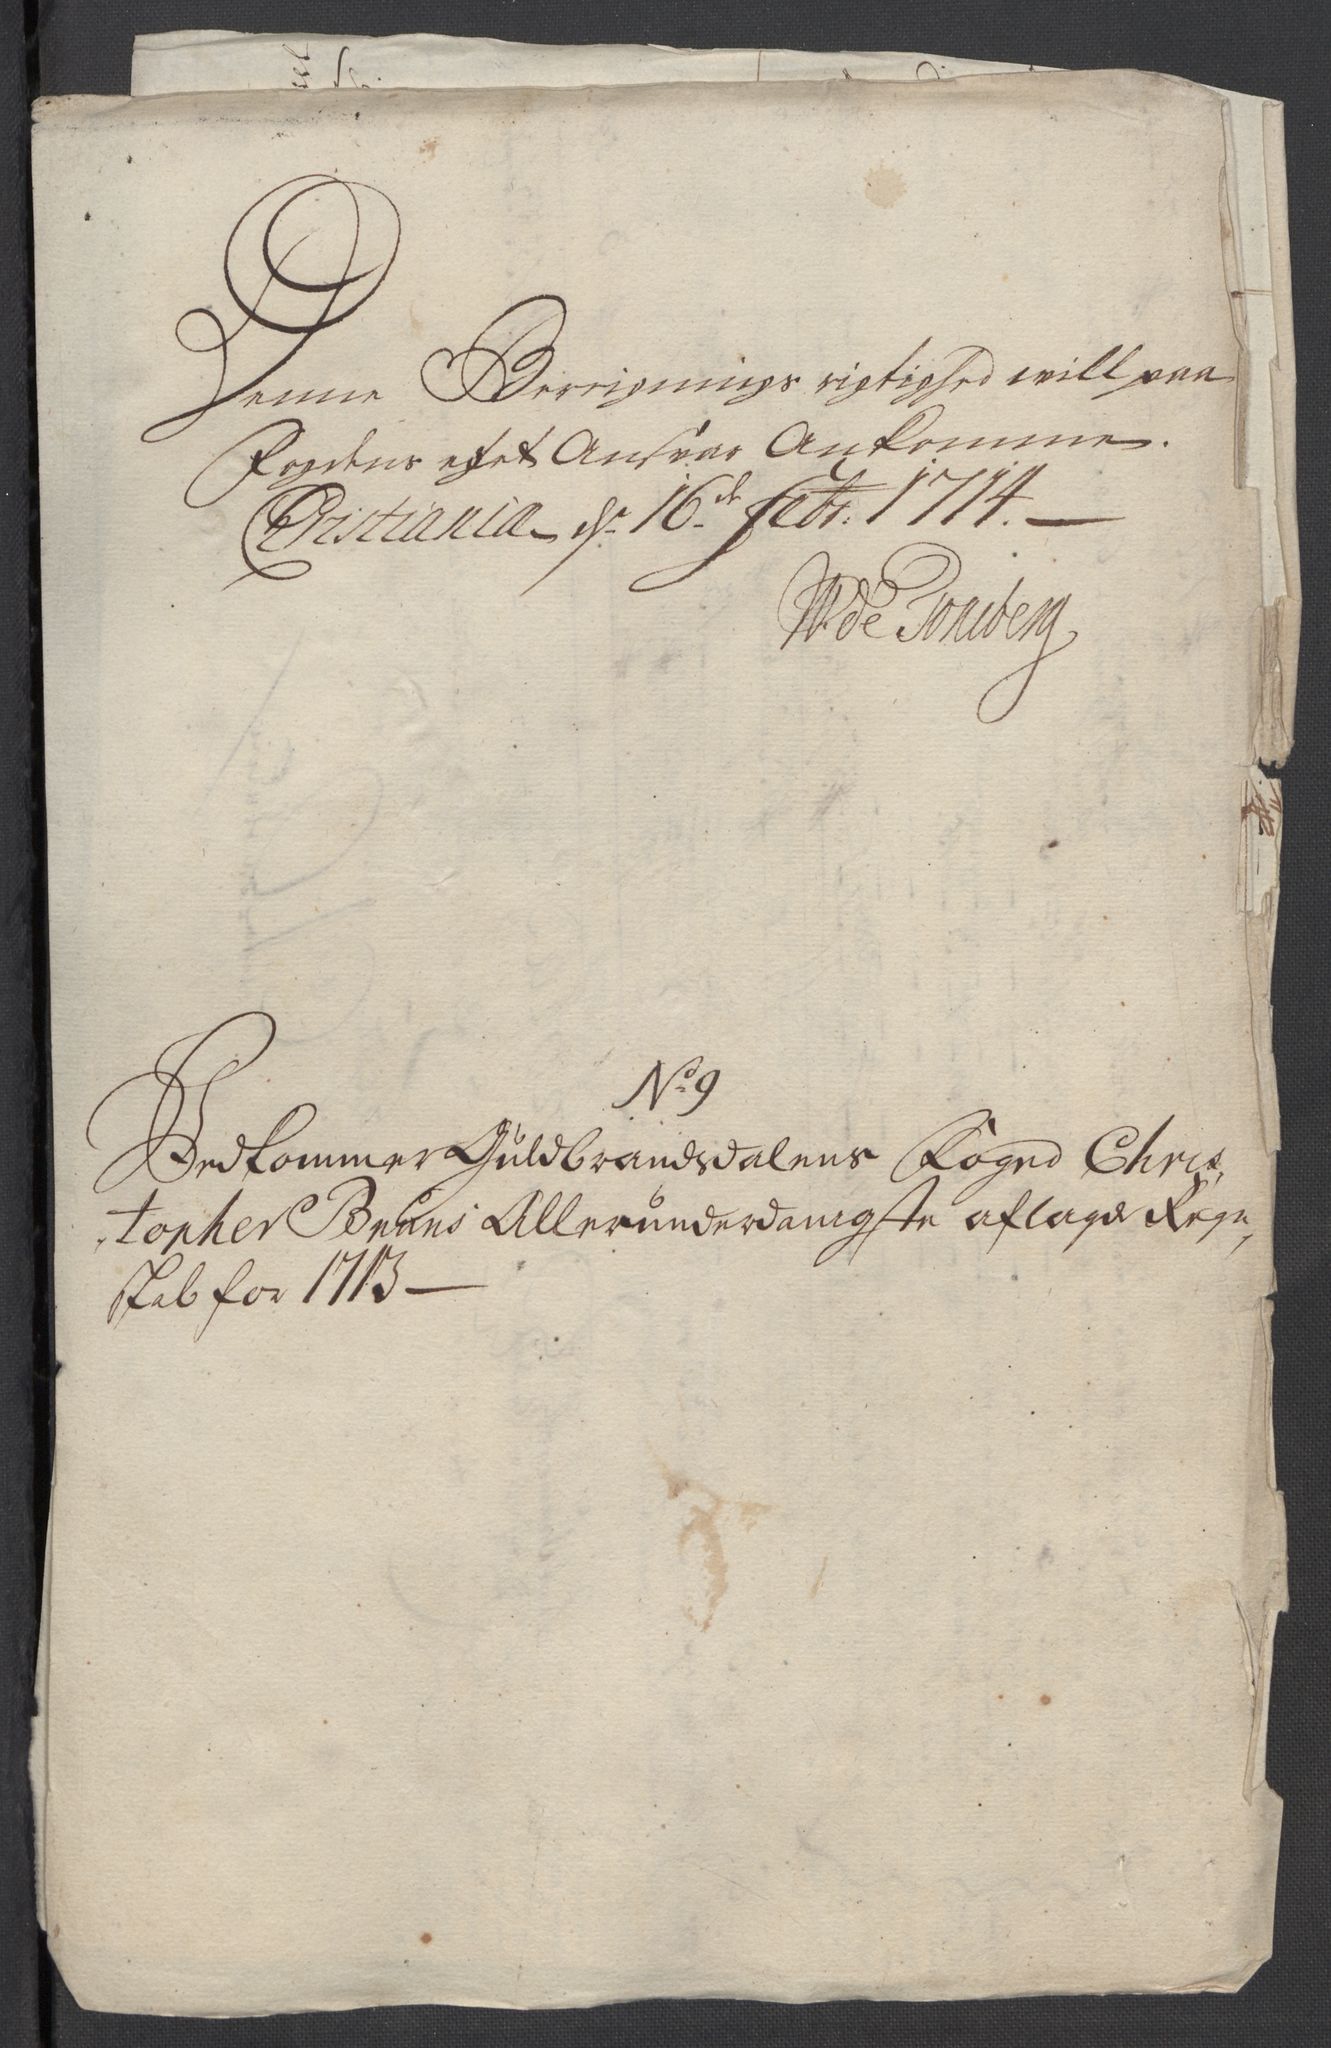 Denne Berrignings rigtighed will paa
Fogdens eget Ansvar Ankomme.
Christiania dr 16de Febr: 1714. —
W de Tonsberg
No 9
Vedkommer Guldbrandsdalens Foged Chris,
,topher Bruns Allerunderdanigste aflagde Regn,
skab for 1713 —